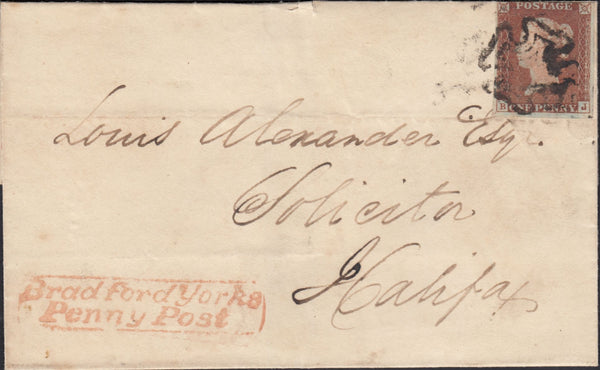 POSTAGE
B ONE PENNY J
Louis Alexander Esqr.
Solicitor
Halifax
Bradford Yorks
Penny Post